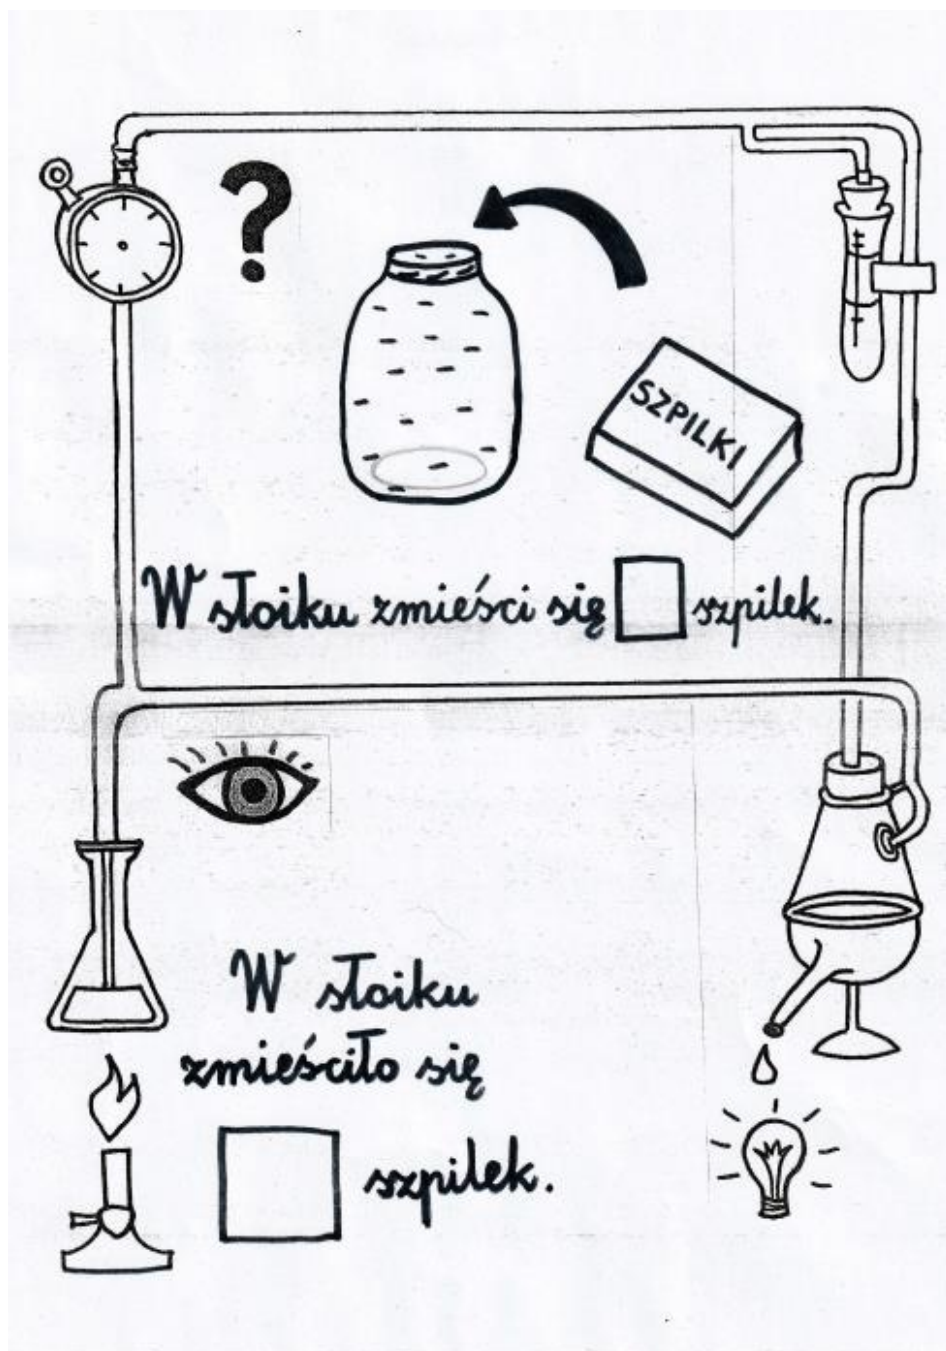 ?
SZPILKI
W słoiku zmieści się szpilek.
W słoiku
zmieściło się
szpilek.